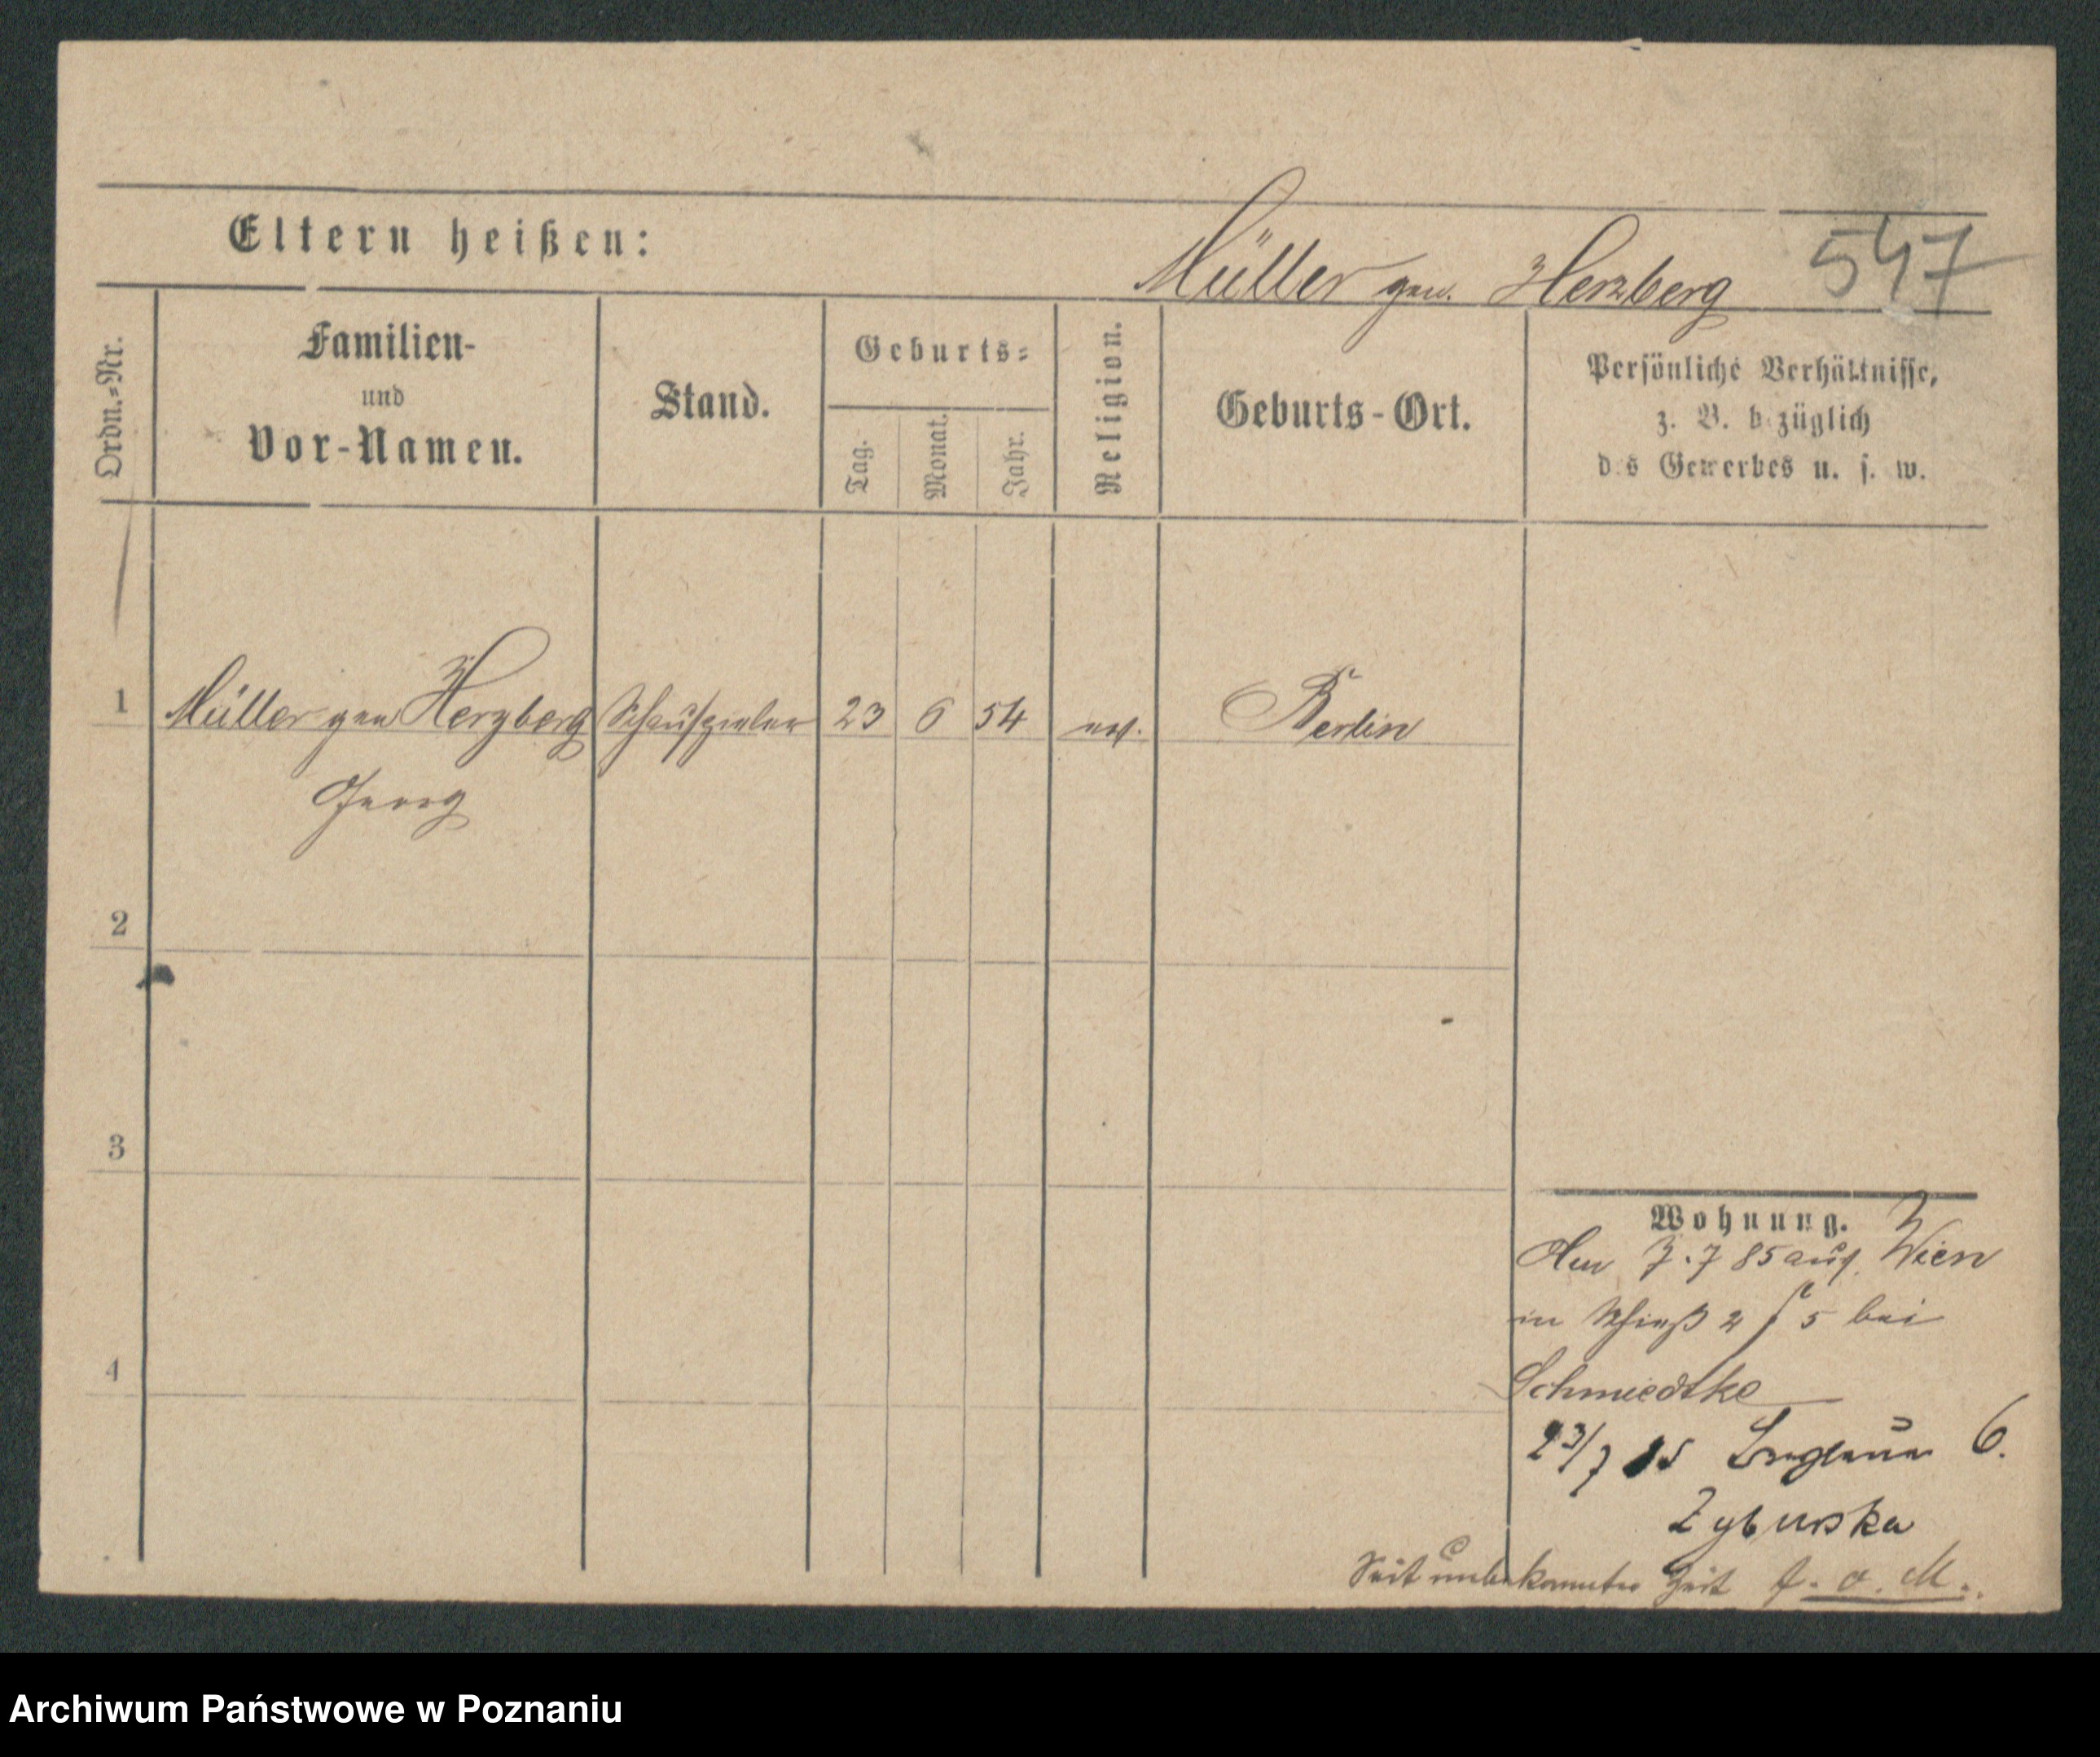 Eltern heißen:
Müller gen. Herzberg 547
Ordn.=Nr.
Familien-
und
Vor-Namen.
Stand.
Geburts=
Tag.
Monat.
Jahr.
Religion.
Geburts-Ort.
Persönliche Verhältnisse,
z. B. bezüglich
des Gewerbes u. s. w.
1 Müller gen Herzberg Schauspieler 23 6 54 ev. Berlin
Georg
2
3
4
Wohnung.
Am 7.7 85 aus Wien
in 2 5 bei
Schmiedtke
23/7 85 6.
Zyburska
Seit unbekannter Zeit f. o. M.
Archiwum Państwowe w Poznaniu